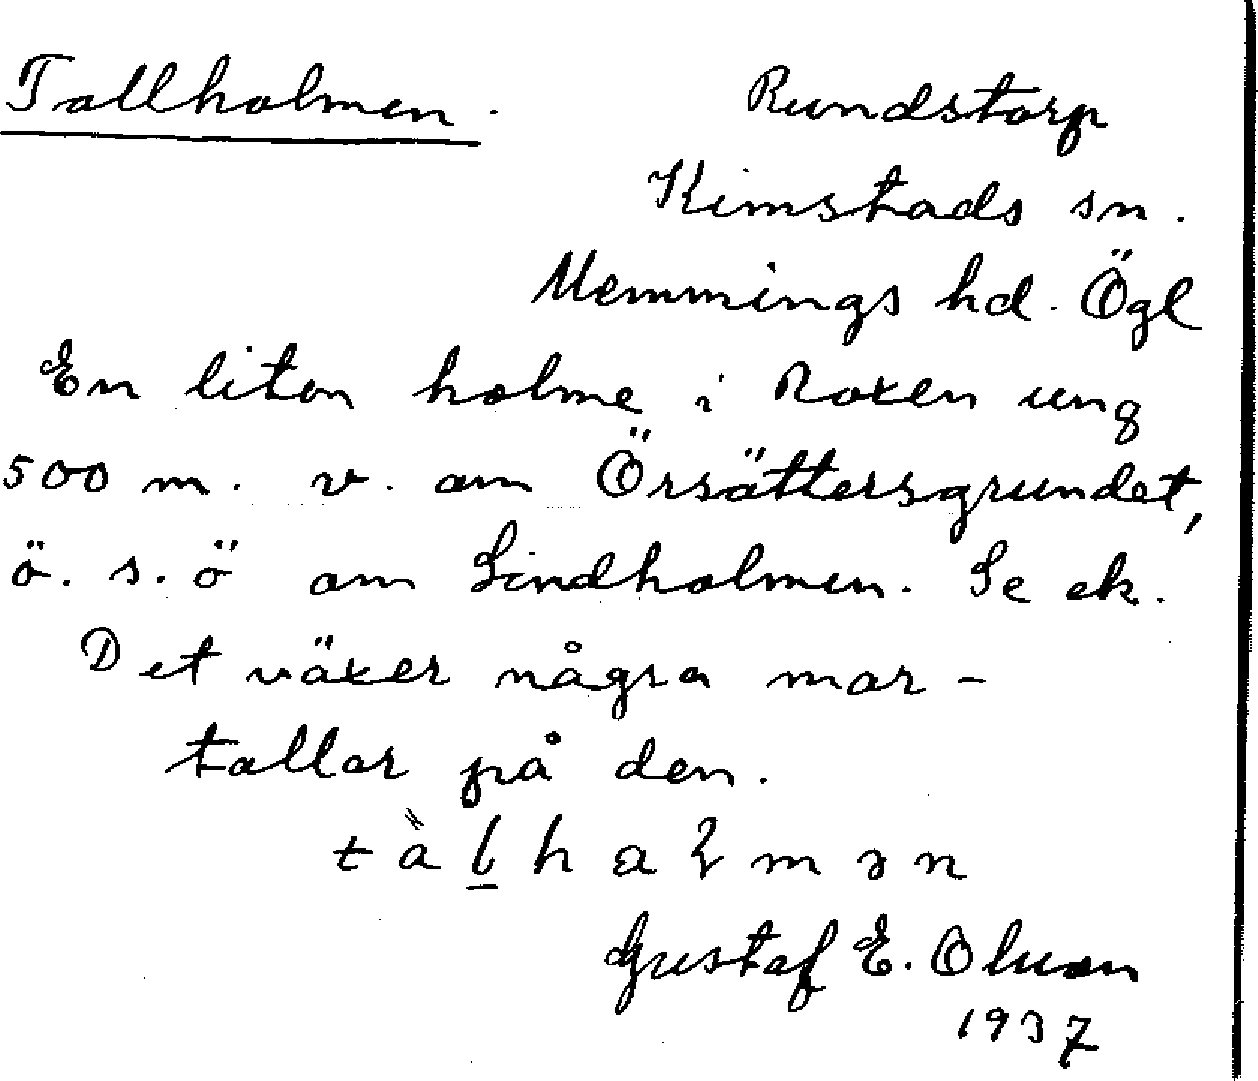 Tallholmen. Rundstorp
Kimstads sn.
Memmings hd. Ögl
En liten holme i Roxen ung
500 m. v. om Örsättersgrundet,
ö. s. ö om Lindholmen. Se ek.
Det växer några mar-
tallar på den.
Gustaf E. Olsson
1937